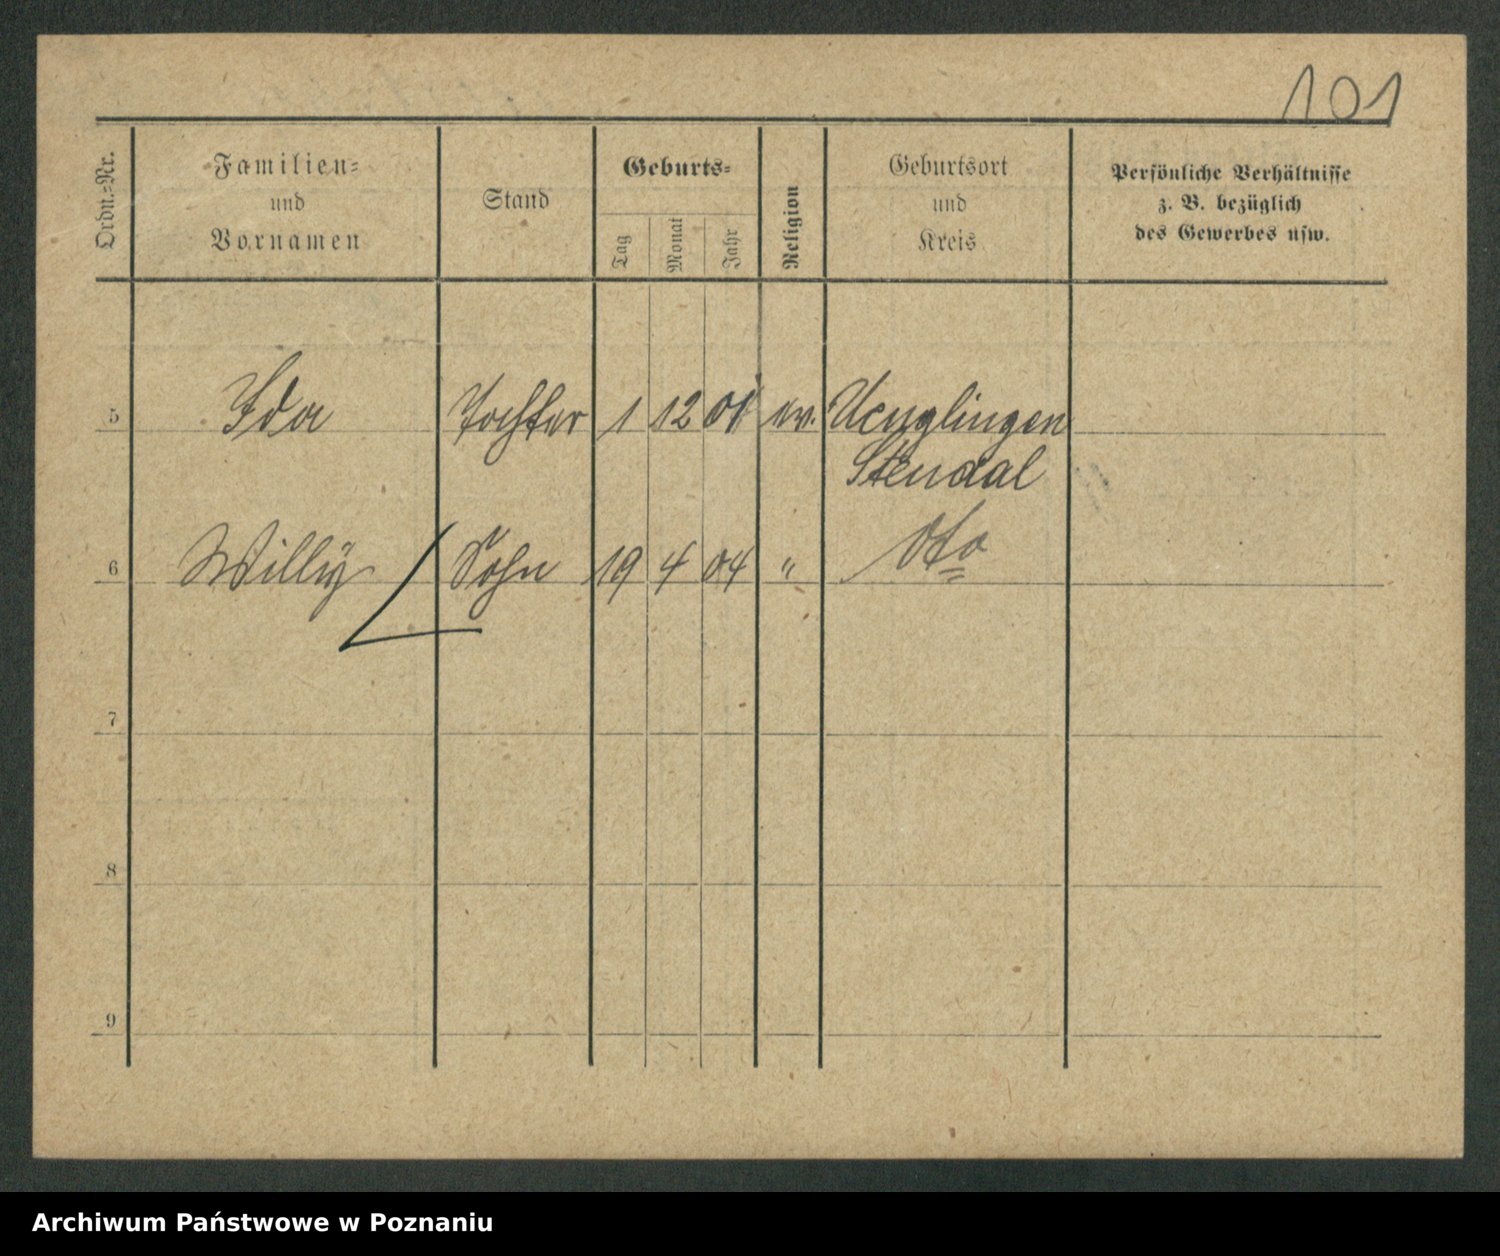 101
Ordn.-Nr.
Familien-
und
Vornamen
Stand
Geburts-
Tag
Monat
Jahr
Religion
Geburtsort
und
Kreis
Persönliche Verhältnisse
z. B. bezüglich
des Gewerbes usw.
5 Ida Tochter 1 12 01 ev. Uenglingen
Stendal
6 Willy Sohn 19 4 04 " dto
7
8
9
Archiwum Państwowe w Poznaniu